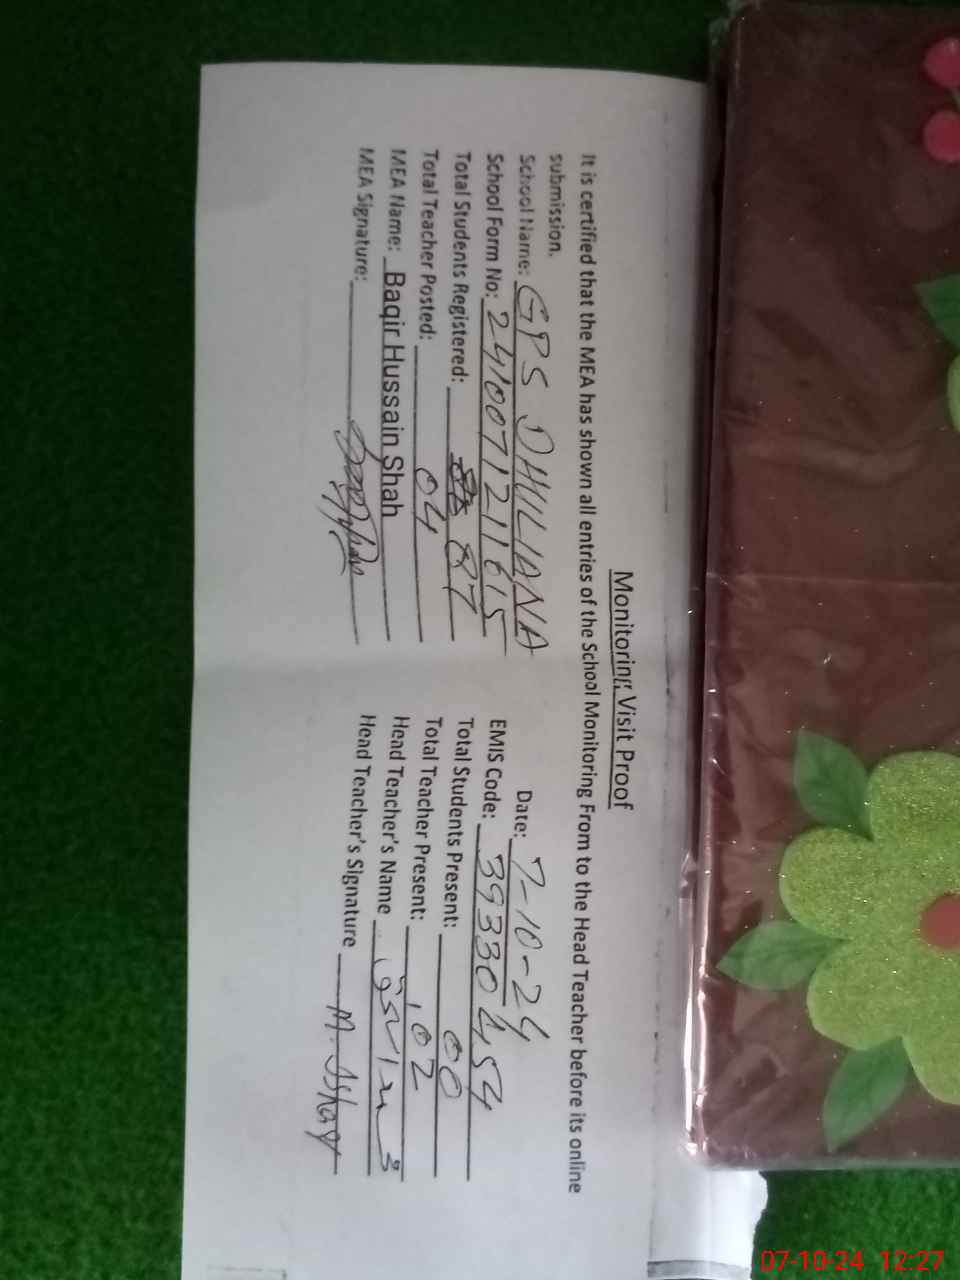 Monitoring Visit Proof
It is certified that the MEA has shown all entries of the School Monitoring From to the Head Teacher before its online
submission.
School Name: GPS DHULIANA Date: 7-10-24
School Form No: 2410071211615 EMIS Code: 39330454
Total Students Registered: 87 Total Students Present: 00
Total Teacher Posted: 04 Total Teacher Present: 02
MEA Name: Baqir Hussain Shah Head Teacher's Name
MEA Signature: Head Teacher's Signature M. Ishaq
07-10-24 12:27